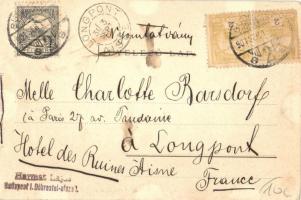 LONGPONT
Nyomtatvány
LEVELEZŐ-LAP
Melle Charlotte Barsdorf
(à Paris 27 av. Daudaine
à Longpont
Hôtel des Ruines Aisne
France
Harmat Lajos
Budapest I. Döbrentei-utca 7.